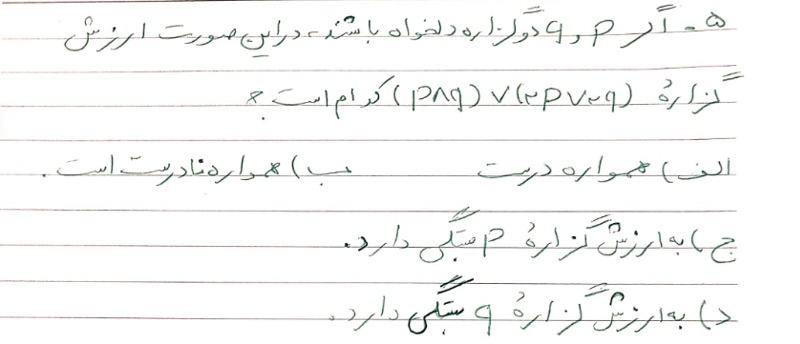 ۵- اگر p و q دو گزاره دلخواه باشند، در این صورت ارزش
گزارهٔ (p∧q) ∨ (~p∨~q) کدام است؟
الف) همواره درست ب) همواره نادرست است.
ج) به ارزش گزارهٔ p بستگی دارد.
د) به ارزش گزارهٔ q بستگی دارد.